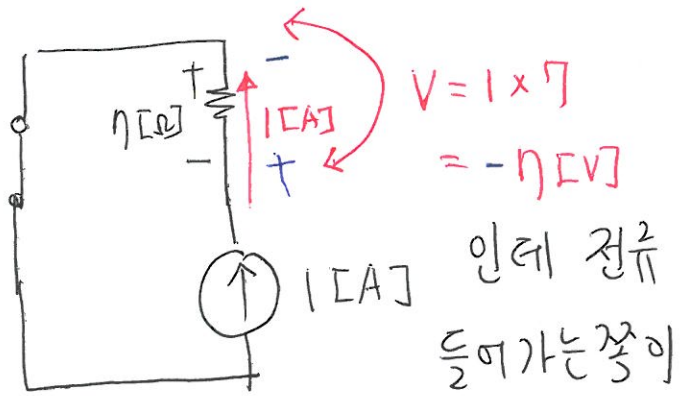 + -
7[Ω] 1[A] V = 1 × 7
- + = -7[V]
1[A] 인데 전류
들어가는쪽이